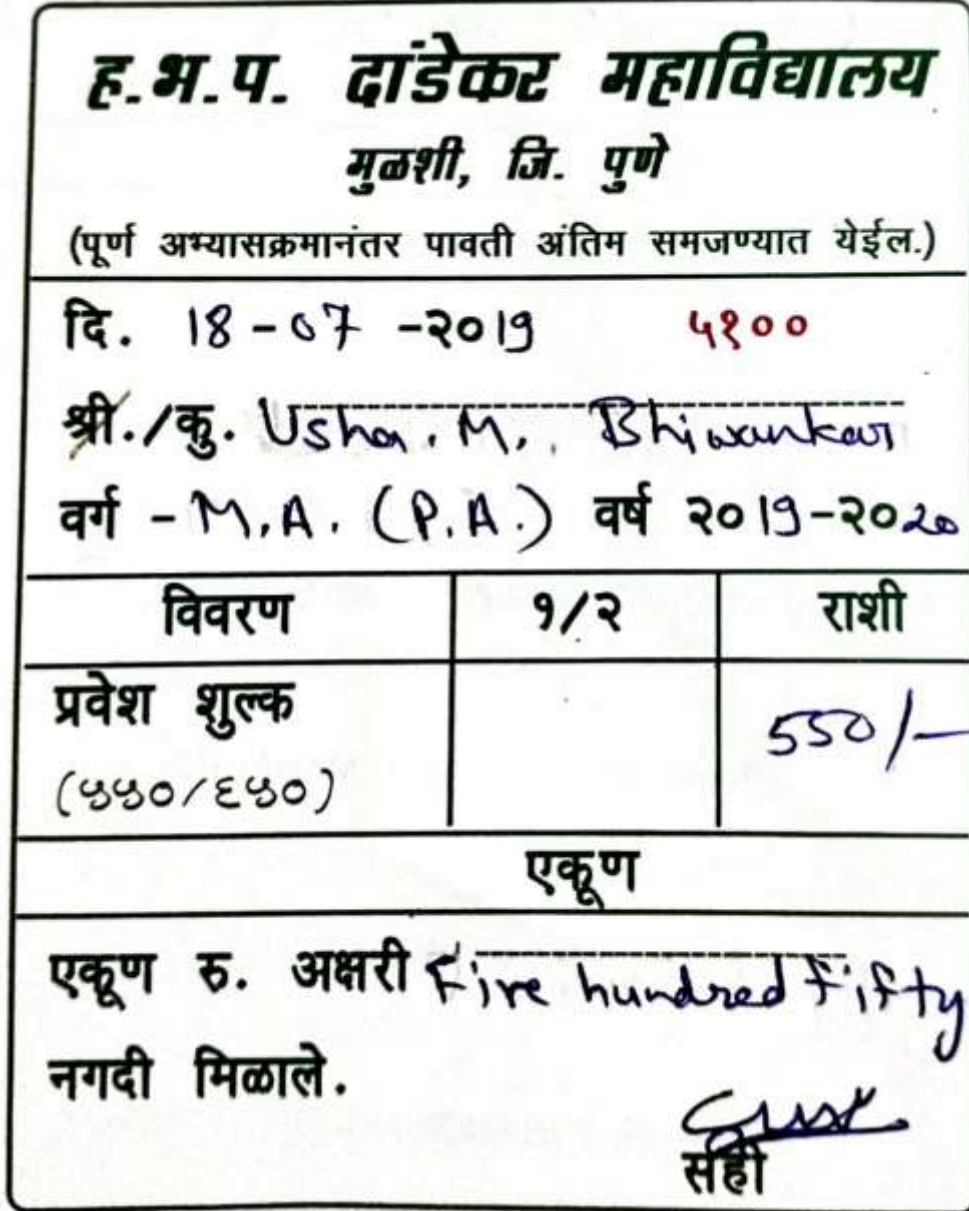 ह.भ.प. दांडेकर महाविद्यालय
मुळशी, जि. पुणे
(पूर्ण अभ्यासक्रमानंतर पावती अंतिम समजण्यात येईल.)
दि. 18-07-२०19 ५१००
श्री./कु. Usha. M. Bhiwankar
वर्ग - M.A. (P.A.) वर्ष २०19-२०20
विवरण १/२ राशी
प्रवेश शुल्क 550/-
(५५०/६५०)
एकूण
एकूण रु. अक्षरी Five hundred Fifty
नगदी मिळाले.
सही